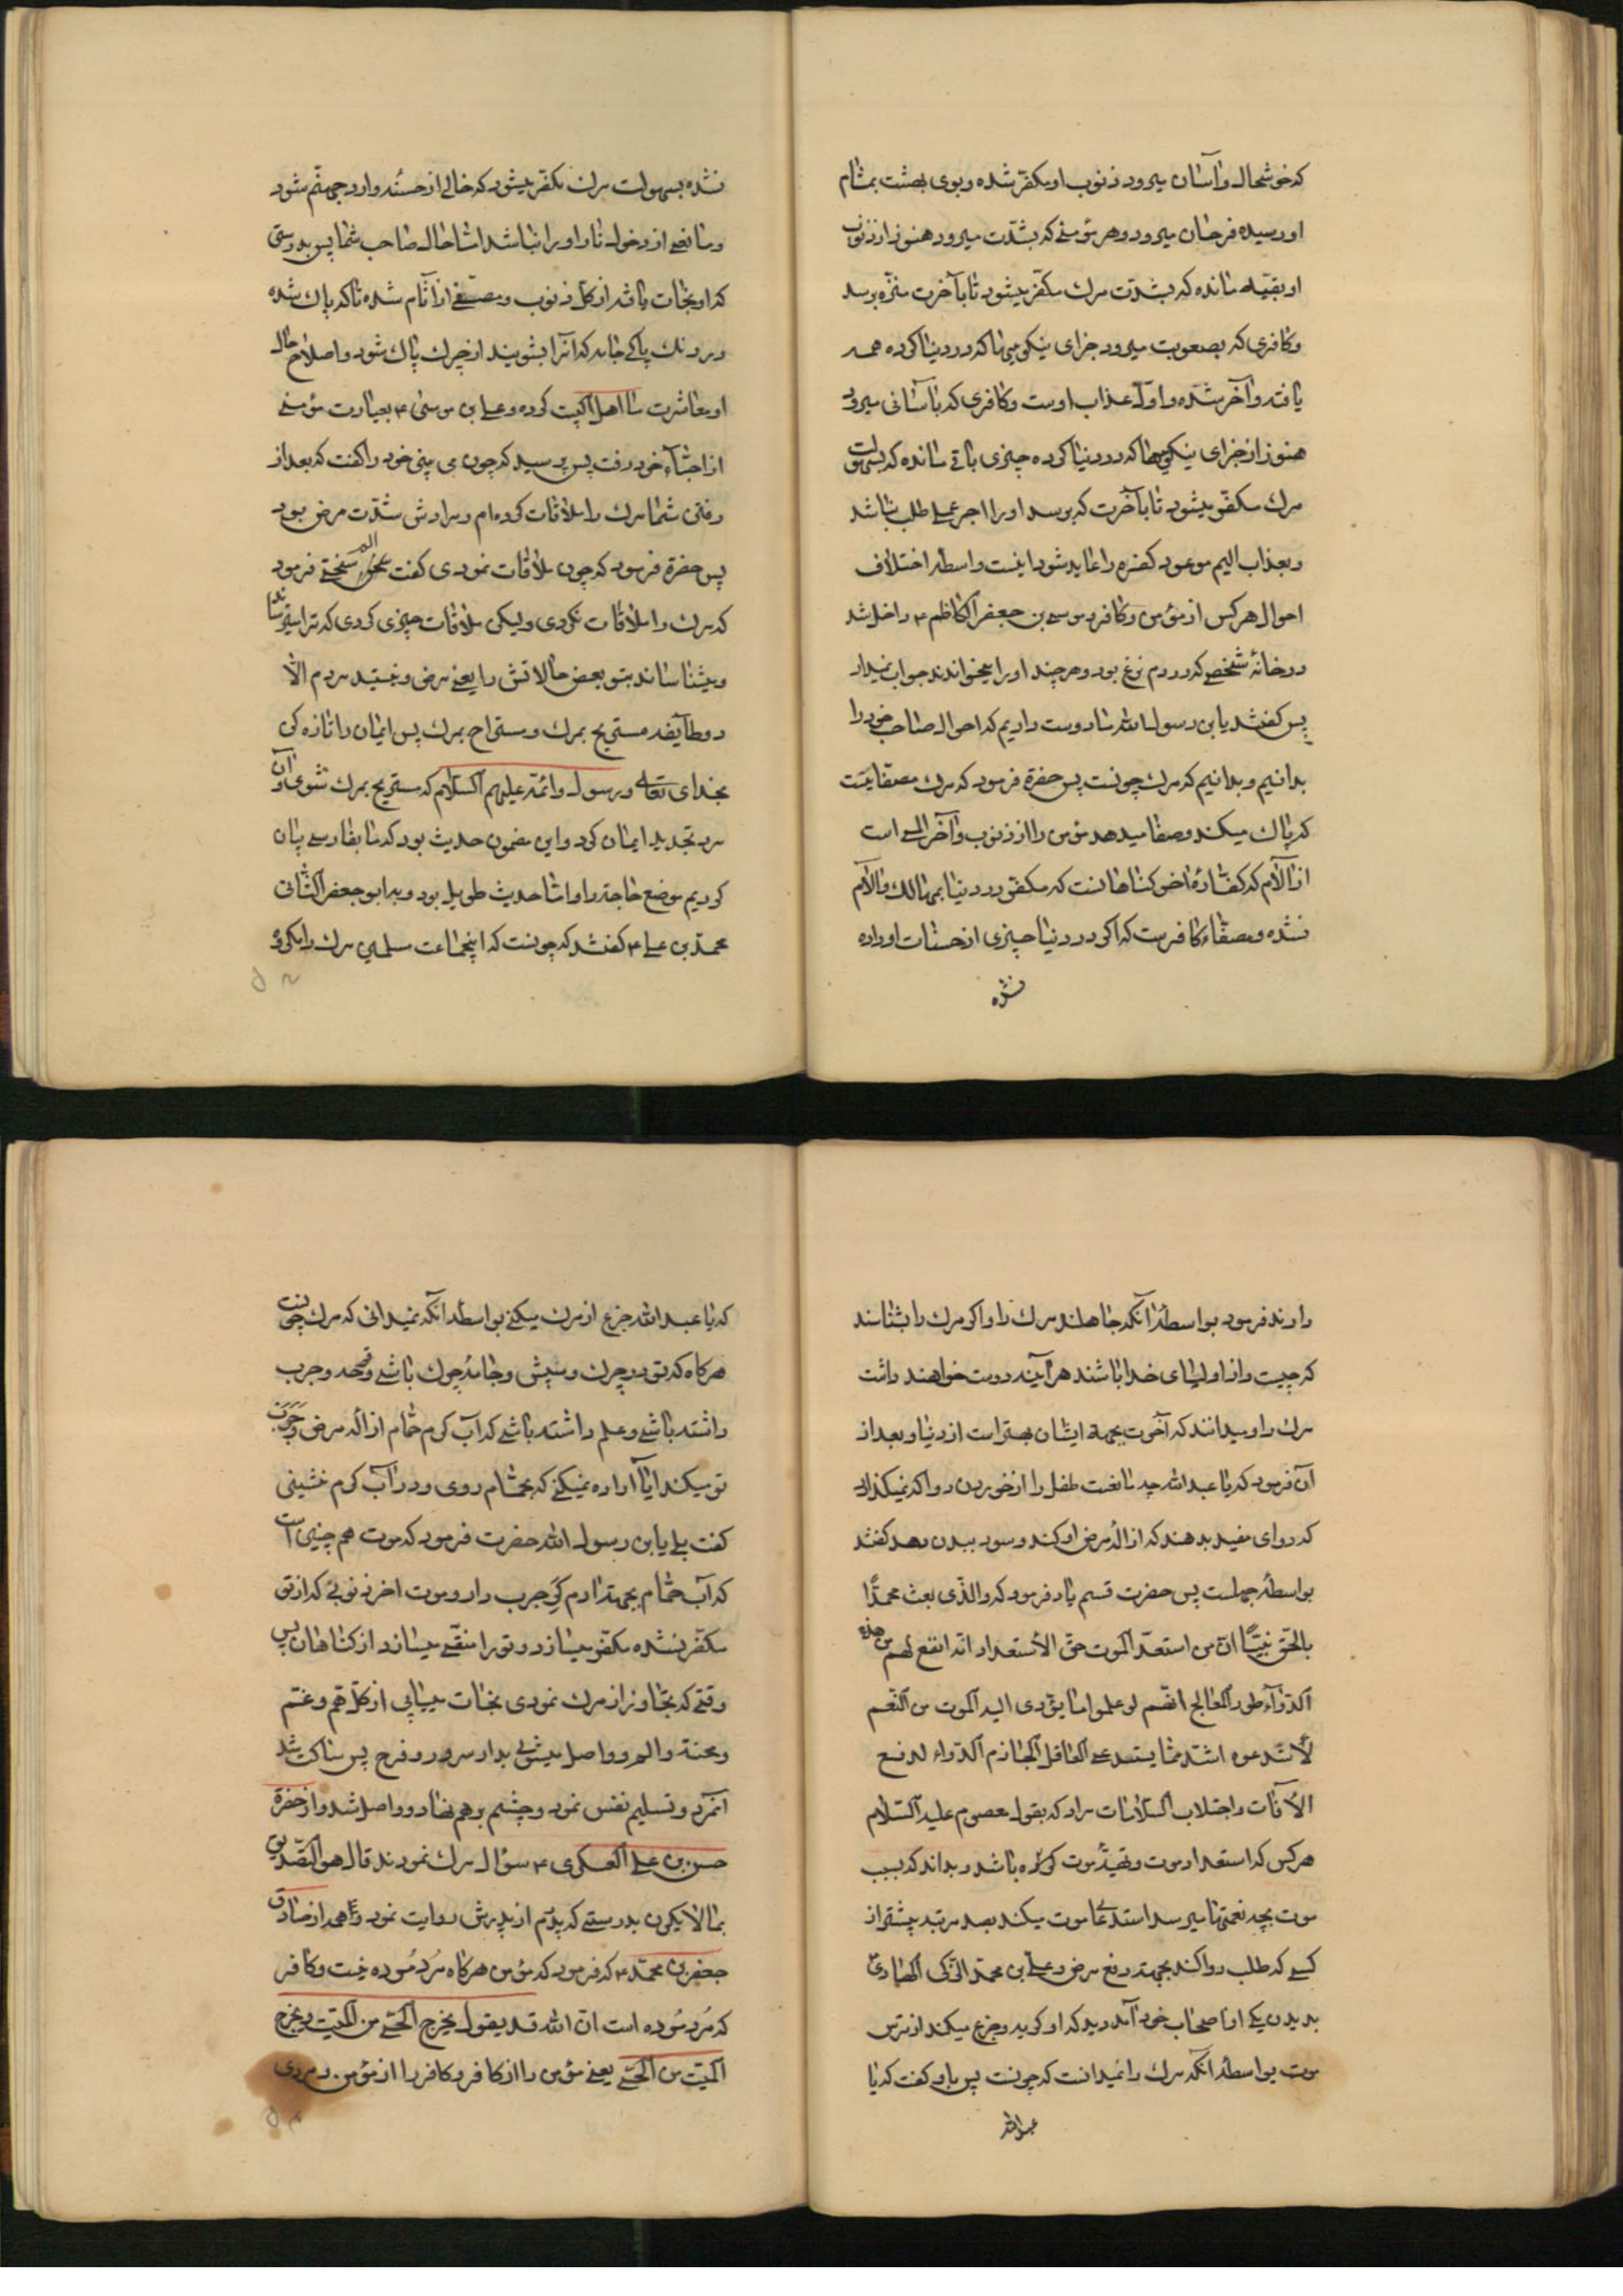 که خوشحال و آسان میرود ذنوب او مکفّر شده و بوی بهشت بمشام
او رسیده فرحان میرود و هر مؤمنی که بشدّت میرود هنوز از ذنوب
او بقیّه مانده که بشدّت مرك مکفّر میشود تا بآخرت منزّه برسد
و کافری که بصعوبت میرود جزای نیکوییها که در دنیا کرده همه
یافته و آخر شده و اوّل عذاب اوست و کافری که بآسانی میرود
هنوز از جزای نیکوییها که در دنیا کرده چیزی باقی مانده که بسهولت
مرك مکفّر میشود تا بآخرت که برسد او را اجر عمل طلب نباشد
و بعذاب الیم موعود کفره را عاید شود اینست واسطهٔ اختلاف
احوال هر کس از مؤمن و کافر و موسی بن جعفر الکاظم ۴ داخل شد
در خانهٔ شخصی که در دم نزع بود و هر چند او را میخواندند جواب نمیداد
پس کفتند یا بن رسول الله ما دوست داریم که احوال صاحب خود را
بدانیم و بدانیم که مرك چونست پس حضرة فرمود که مرك مصفّا یست
که پاك میکند و صفا میدهد مؤمن را از ذنوب و آخر المی است
از آلام که کفّارهٔ آخر کناهانست که مکفّر در دنیا بمهالك و آلام
نشده و مصفّاء کافرست که اکر در دنیا چیزی از حسنات او داده
نشده
نشده بسهولت مرك مکفّر میشود که خالی از حسنه وارد جهنّم شود
و مانعی از دخول نار او را نباشد اما حال صاحب شما پس بدرستی
که او نجات یافته از کل ذنوب و مصفّی از آثام شده تا که پاك شده
در رنك پاکی جامه که آنرا بشویند از چرك پاك شود و اصلاح حال
او معاشرت ما اهل البیت کرده و علی بن موسی ۴ بعیادت مؤمنی
از احبّاء خود رفت پس پرسید که چون می بینی خود را کفت که بعد از
رفتن شما مرك را ملاقات کرده‌ام و مرادش شدّت مرض بود
پس حضرة فرمود که چون ملاقات نمودی کفت الم سختی فرمود
که مرك را ملاقات نکردی ولیکن ملاقات چیزی کردی که ترا میترساند
و میشناساند بتو بعض حالاتش را یعنی مرض و نیستید مردم الّا
دو طایفه مستریح بمرك و مستراح بمرك پس ایمان را تازه کن
بخدای تعالی و رسول و ائمّه علیهم السّلام که مستریح بمرك شوی و آن
مرد تجدید ایمان کرد و این مضمون حدیث بود که ما بفارسی بیان
کردیم موضع حاجة را و امّا حدیث طویل بود و به ابو جعفر الثّانی
محمّد بن علی ۴ کفتند که چونست که اینجماعت مسلمین مرك را مکروه
دارند فرمود بواسطهٔ آنکه جاهلند مرك را و اکر مرك را بشناسند
که چیست و از اولیای خدا باشند هر آینه دوست خواهند داشت
مرك را و میدانند که آخرت بجهة ایشان بهتر است از دنیا و بعد از
آن فرمود که یا عبد الله چه مانعست طفل را از خوردن دوا که نمیکذارد
که دوای مفید بدهند که ازالهٔ مرض او کند و سود ببدن دهد کفتند
بواسطهٔ جهلست پس حضرت قسم یاد فرمود که والّذی بعث محمّدًا
بالحقّ نبیًّا انّ من استعدّ الموت حقّ الأستعداد انّه انفع لهم من هذه
الدّوآء طور المعالج انّهم لو علموا ما یؤدی الیه الموت من النّعم
لأستدعوه اشتد ممّا یستدعی العاقل الجازم الدّواء لدفع
الأفات و اجتلاب السّلامات مراد که بقول معصوم علیه السّلام
هر کس که استعداد موت و تهیّهٔ موت کرده باشد و بداند که بسبب
موت بچه نعمتها میرسد استدعا موت میکند بصد مرتبه پیشتر از
کسی که طلب دوا کند بجهة رفع مرض و علی بن محمّد النّقی الهادی
بدیدن یکی از اصحاب خود آمد دید که او کریه و جزع میکند از ترس
موت بواسطهٔ آنکه مرك را نمیدانست که چونست پس باو کفت که یا
عبد الله
که یا عبد الله جزع از مرك میکنی بواسطهٔ آنکه نمیدانی که مرك چونست
هر کاه که تو در چرك و سپش و جامهٔ چرك باشی و قرحه و جرب
داشته باشی و علم داشته باشی که آب کرم حمّام ازالهٔ مرض و جرب
تو میکند ایا آراده نمیکنی که بحمّام روی و در آب کرم نشینی
کفت بلی یا بن رسول الله حضرت فرمود که موت هم چنین است
که آب حمّام بجهة آدم جرب دار و موت آخر ذنوبی که از تو
مکفّر نشده مکفّر میسازد و تو را منقّی میسازد از کناهان پس
وقتی که تجاوز از مرك نمودی نجات مییابی از کلّ همّ و غمّ
و محنة و الم و واصل میشوی بدار سرور و فرح پس ساکت شد
آنمرد و تسلیم نفس نمود و چشم بر هم نهاد و واصل شد و از حضرة
حسن بن علی العسکری ۴ سؤال مرك نمودند قال هو التّصدیق
بما لا یکون بدرستی که پدرم از پدرش روایت نمود و از صادق
جعفر بن محمّد ۴ که فرمود که مؤمن هر کاه مُرد مُرده نیست و کافر
که مُرد مُرده است انّ الله قد یقول یخرج الحیّ من المیّت و یخرج
المیّت من الحیّ یعنی مؤمن را از کافر و کافر را از مؤمن و مردی